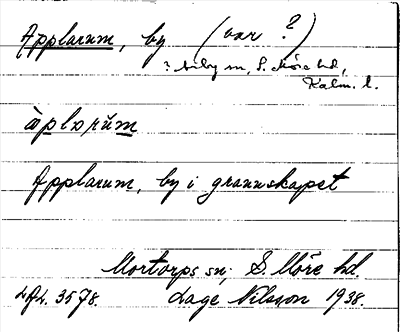 Applarum, by (var ?)
? Arby sn, S. Möre hd,
Kalm. l.
àplarŭm
Applarum, by i grannskapet
Mortorps sn; S. Möre hd.
LfL. 3578. Lage Nilsson 1938.